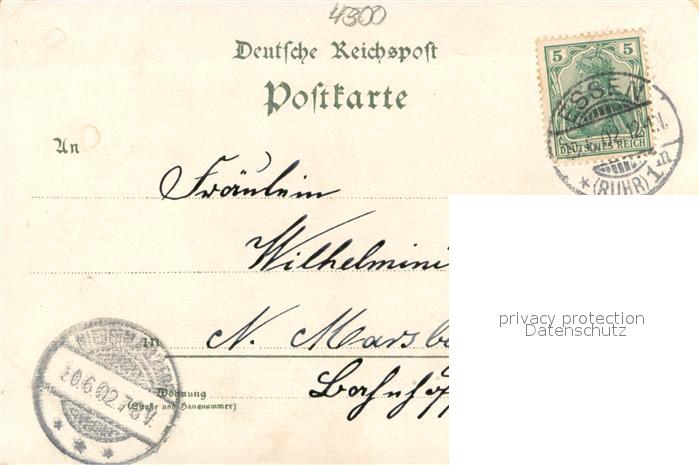 4300
Deutsche Reichspost
Postkarte
5 5
DEUTSCHES REICH
ESSEN
*(RUHR) 1 n
An
Fräulein
Wilhelmini
in N. Marsb
Wohnung
(Straße und Hausnummer)
Bahnhof
0.6.02.7-8V.
privacy protection
Datenschutz